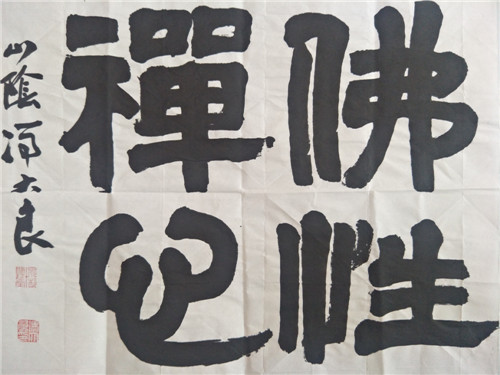 佛性
禪心
山陰馮大良